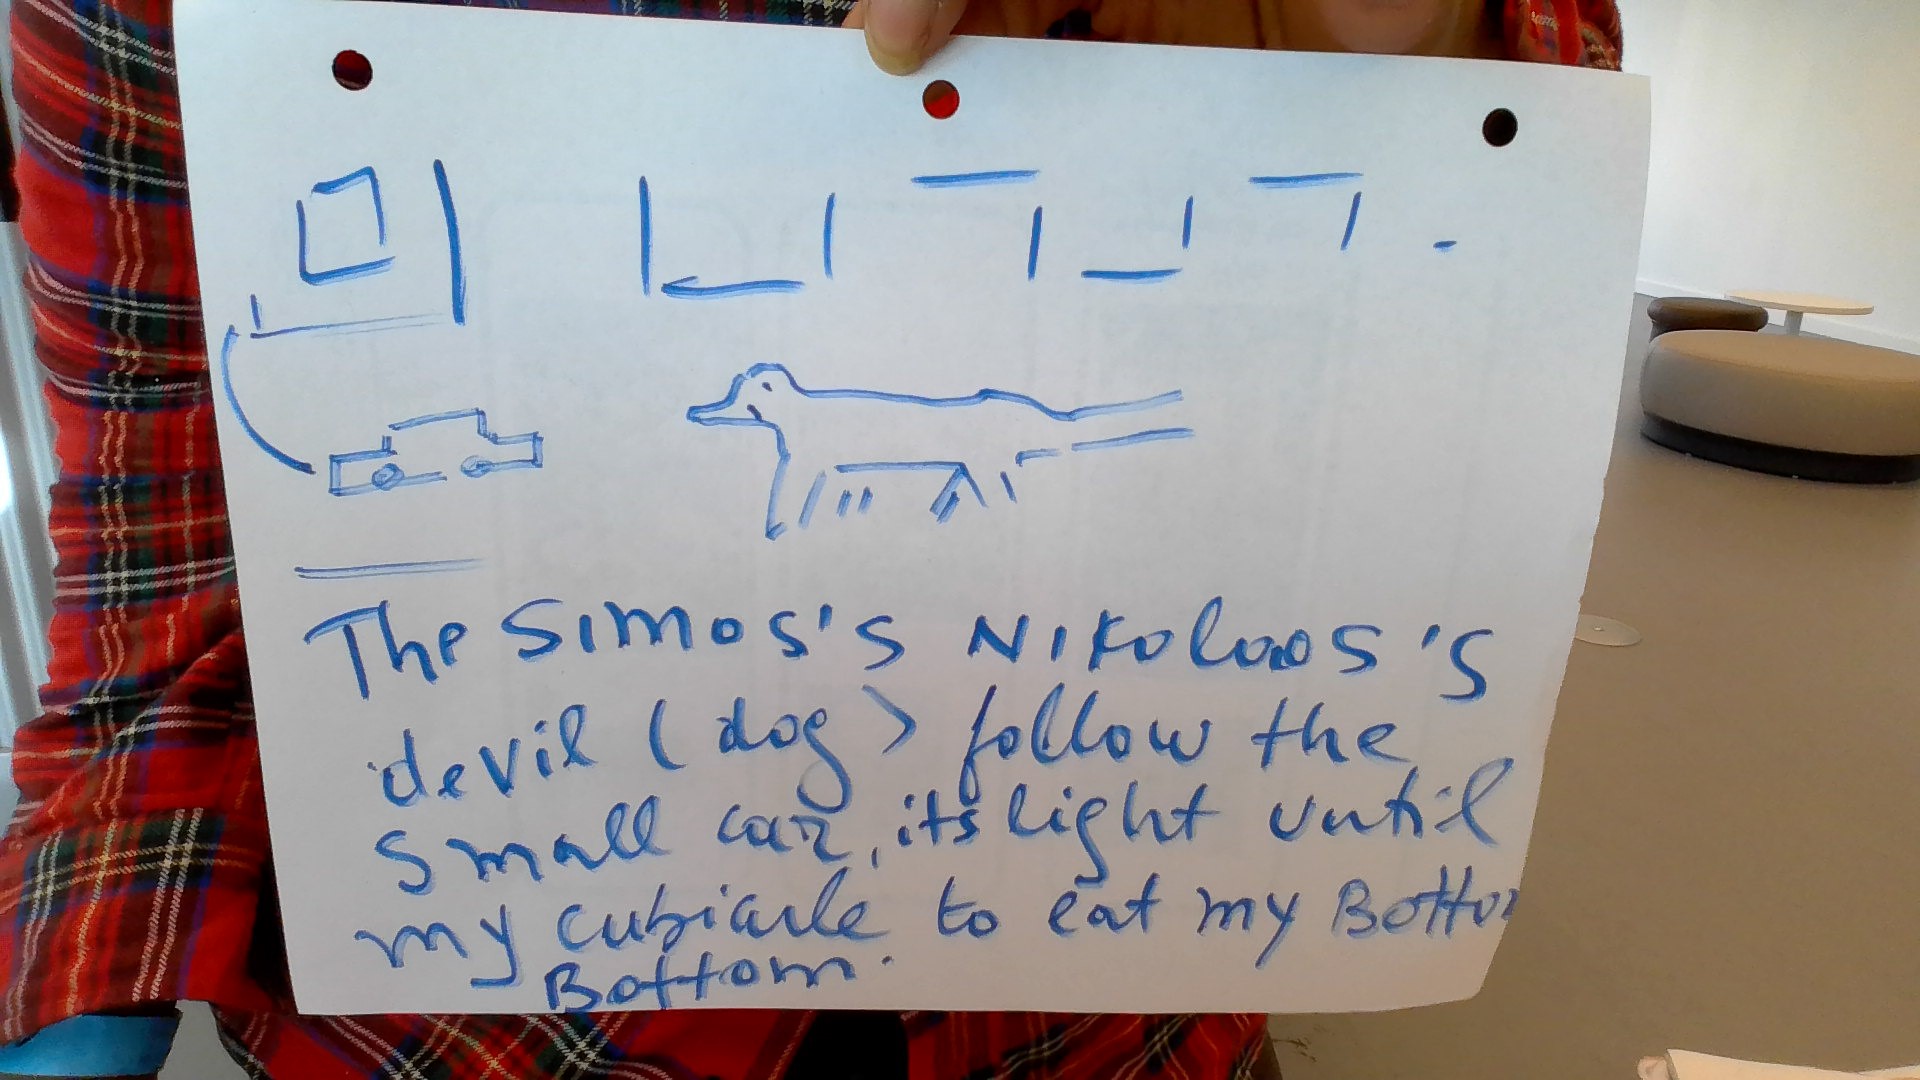 The SIMOS'S NIKOLAOS'S
devil (dog) follow the
small car, its light until
my cubicule to eat my Bottom
Bottom.